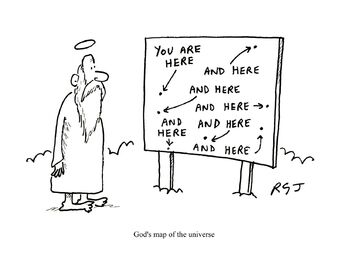 YOU ARE
HERE
AND HERE
AND HERE
AND HERE
AND
HERE
AND HERE
AND HERE
RGJ
God's map of the universe